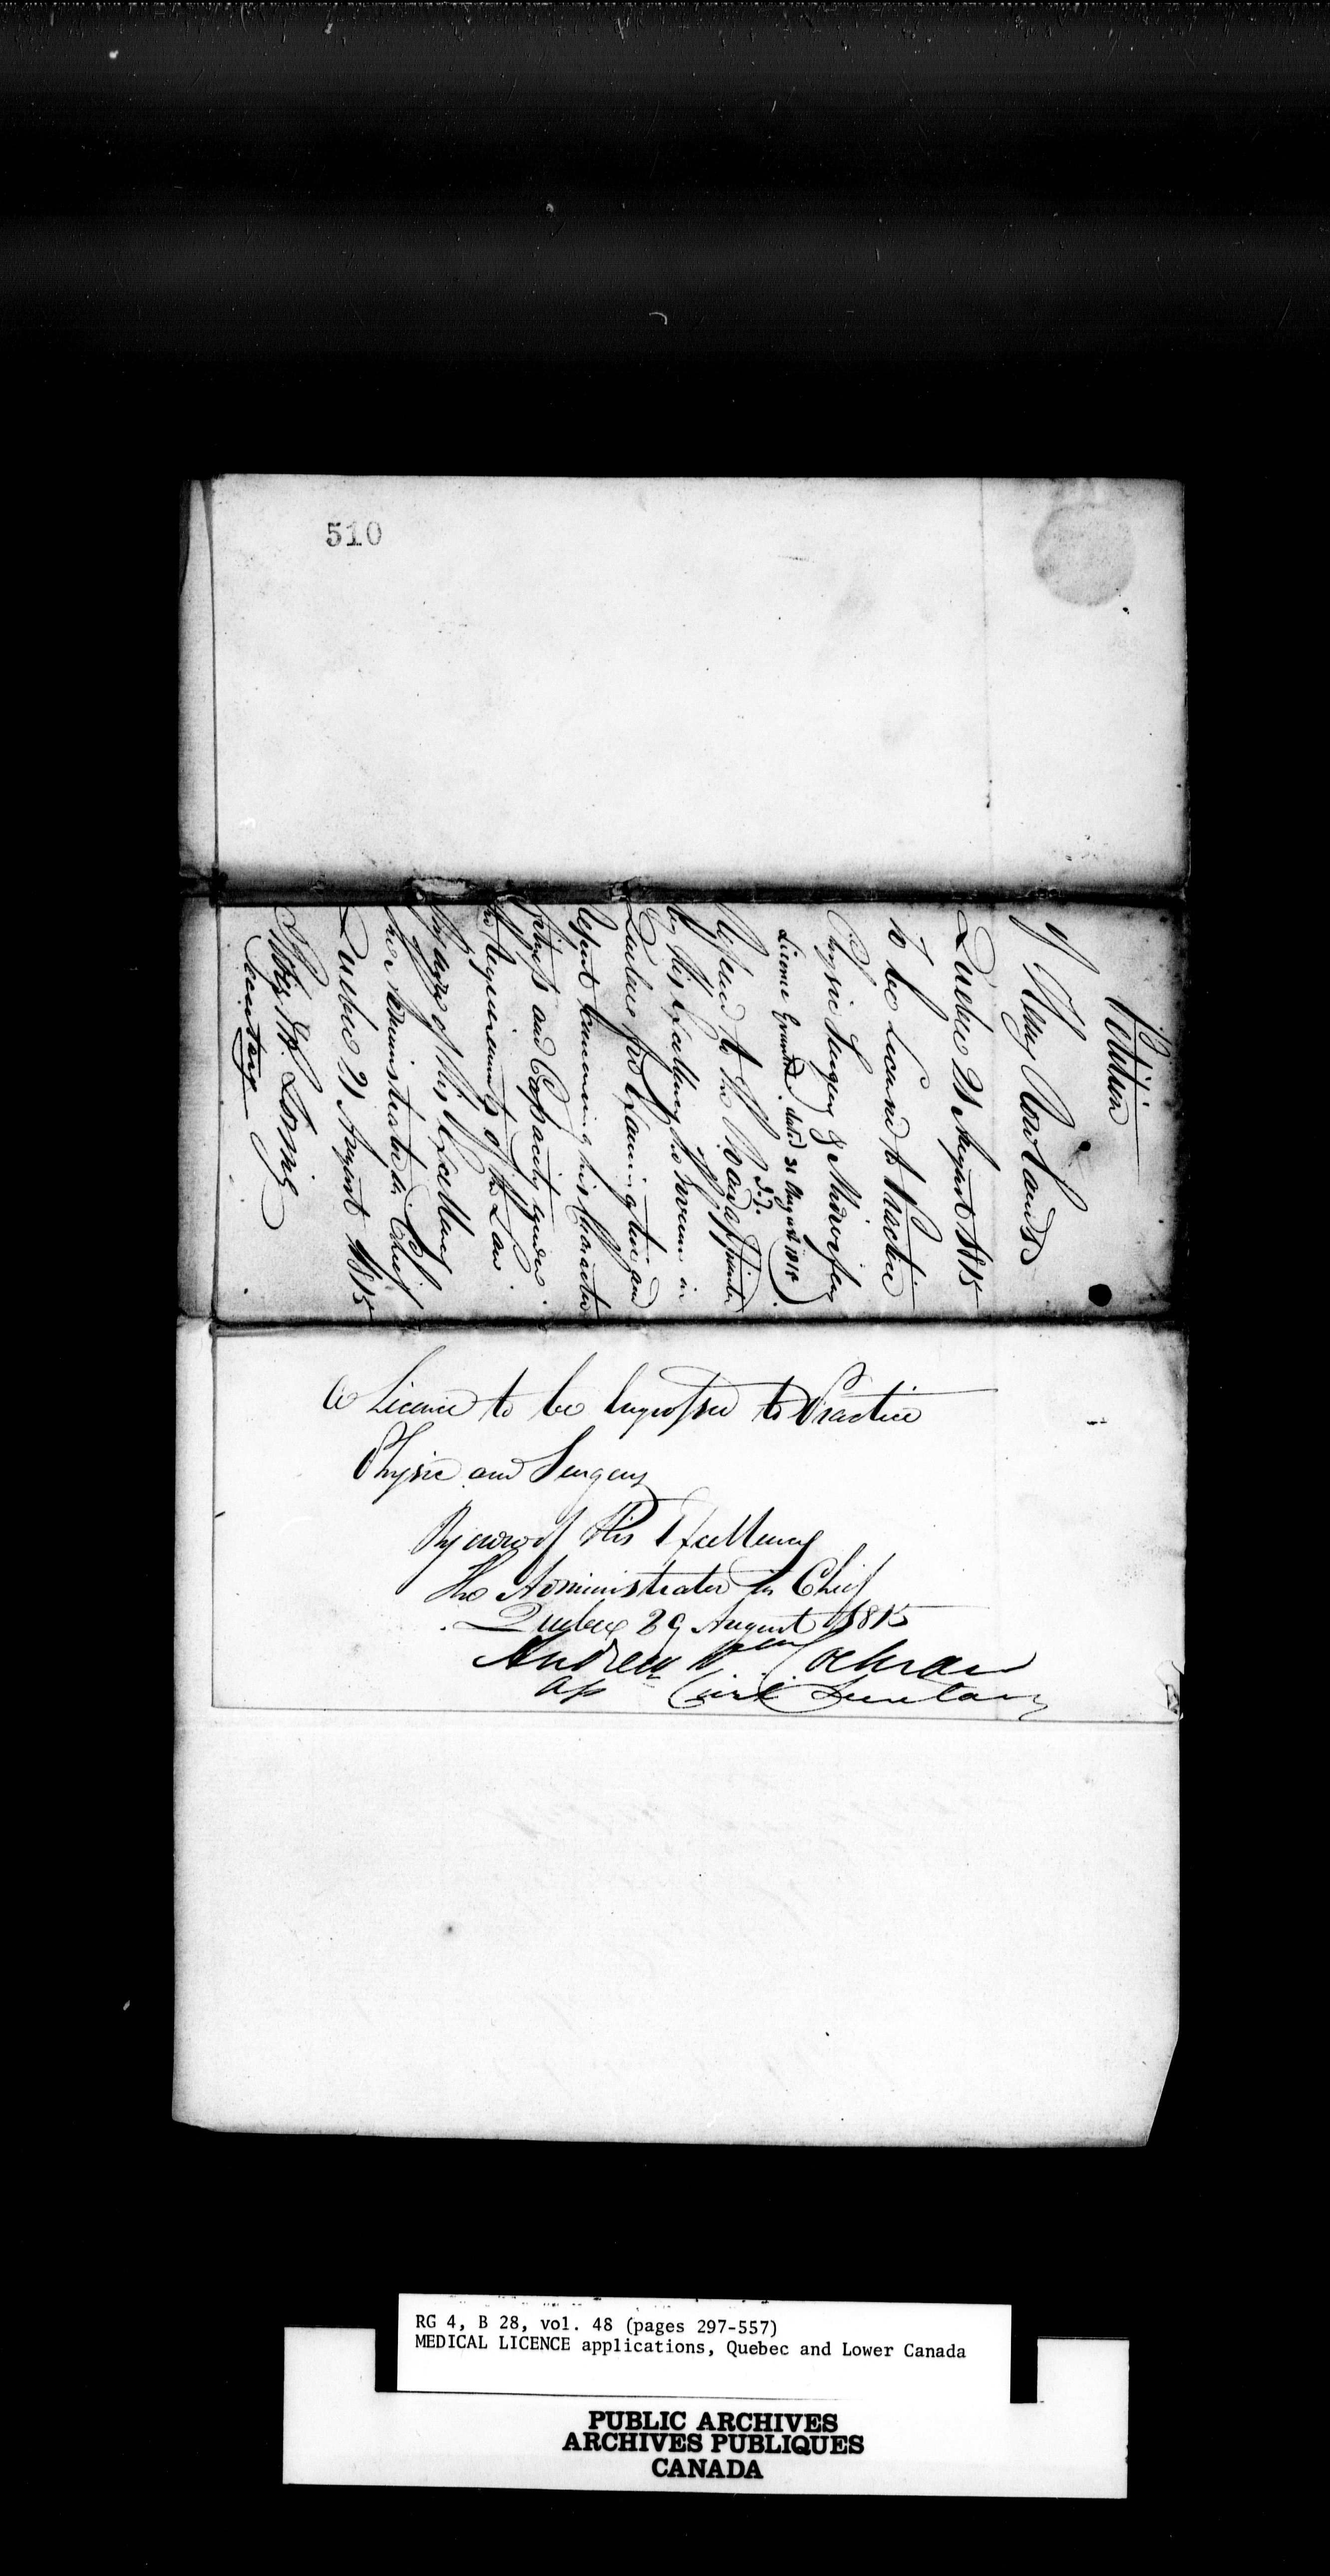 510
Petition
of Henry Rowlands
Quebec 21 August 1815
to be Licened to Practice
Physic Surgery & Midwifery
Licence Granted dated 31 August 1815
Referred to the Board appointed
by His Excellency the Governor in
Quebec for Examination and
Report concerning his Character
Fitness and Capacity under
the requirements of the Law.
By order of His Excellency
the Administrator in Chief
Quebec 21 August 1815
Rob. R. Loring
Secretary
A Licence to be Engrossed to Practice
Physic and Surgery
By order of His Excellency
The Administrator in Chief
Quebec 29 August 1815
Andrew Wm Cochran
as Civil Secretary
RG 4, B 28, vol. 48 (pages 297-557)
MEDICAL LICENCE applications, Quebec and Lower Canada
PUBLIC ARCHIVES
ARCHIVES PUBLIQUES
CANADA